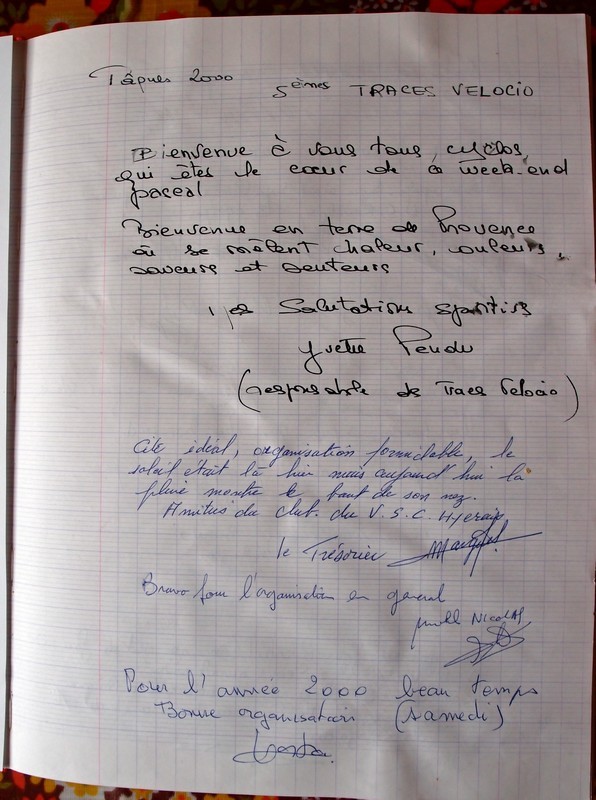 Pâques 2000
5èmes TRACES VELOCIO
Bienvenue à vous tous, cyclos,
qui êtes le cœur de ce week-end
pascal
Bienvenue en terre de Provence
où se mêlent chaleur, couleurs,
saveurs et senteurs
Salutations sportives
Yvette
(responsable des Traces Velocio)
idéal, organisation formidable, le
soleil était là hier mais aujourd'hui la
pluie montre le bout de son nez.
Amitiés du club du V.S.C. Hyérois
le Trésorier
Bravo pour l'organisation en général
NICOLAS
Pour l'année 2000 beau temps
Bonne organisation (samedi)